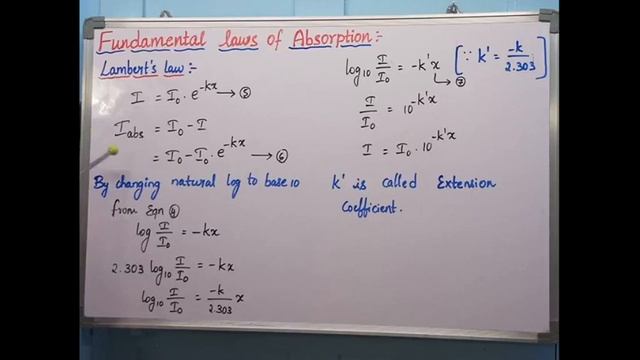 Fundamental laws of Absorption:-
Lambert's law:-
I = I₀ . e^-kx → ⑤
I_abs = I₀ - I
= I₀ - I₀ . e^-kx → ⑥
By changing natural log to base 10
from Eqn ④
log I/I₀ = -kx
2.303 log₁₀ I/I₀ = -kx
log₁₀ I/I₀ = -k/2.303 x
log₁₀ I/I₀ = -k'x [∵ k' = -k/2.303]
→ ⑦
I/I₀ = 10^-k'x
I = I₀ . 10^-k'x
k' is called Extension
Coefficient.